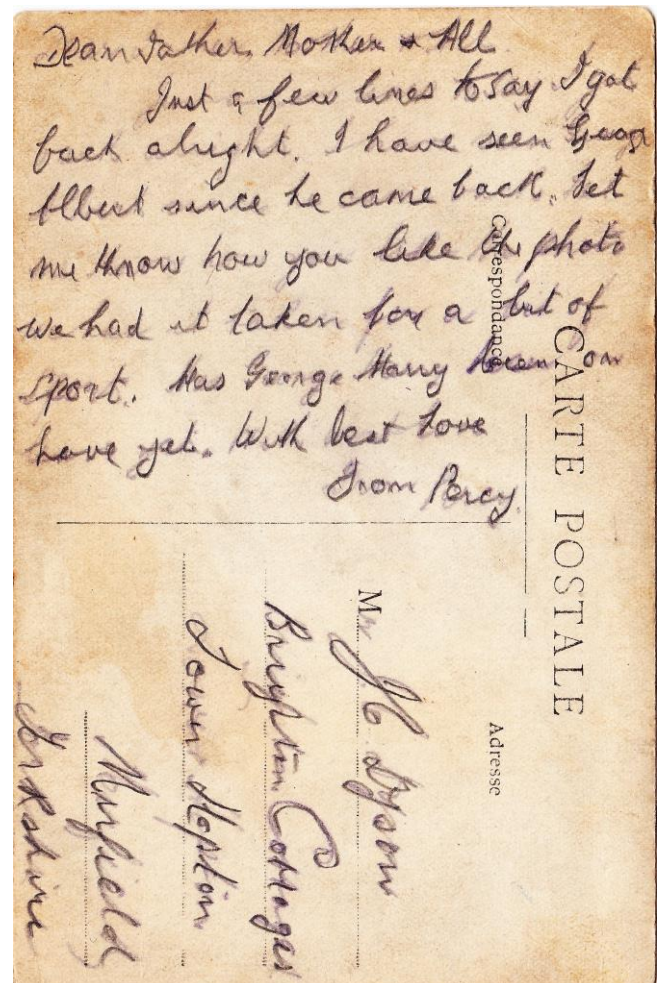 Dear Father Mother & All
Just a few lines to say I got
back alright. I have seen Georg
Albert since he came back. Let
me know how you like the photo
we had it taken for a bit of
sport. Has George Harry been on
leave yet. With best Love
From Percy.
CARTE POSTALE
Correspondance
Adresse
Mr H Dyson
Brighton Cottages
Lower Hopton
Mirfield
Yorkshire